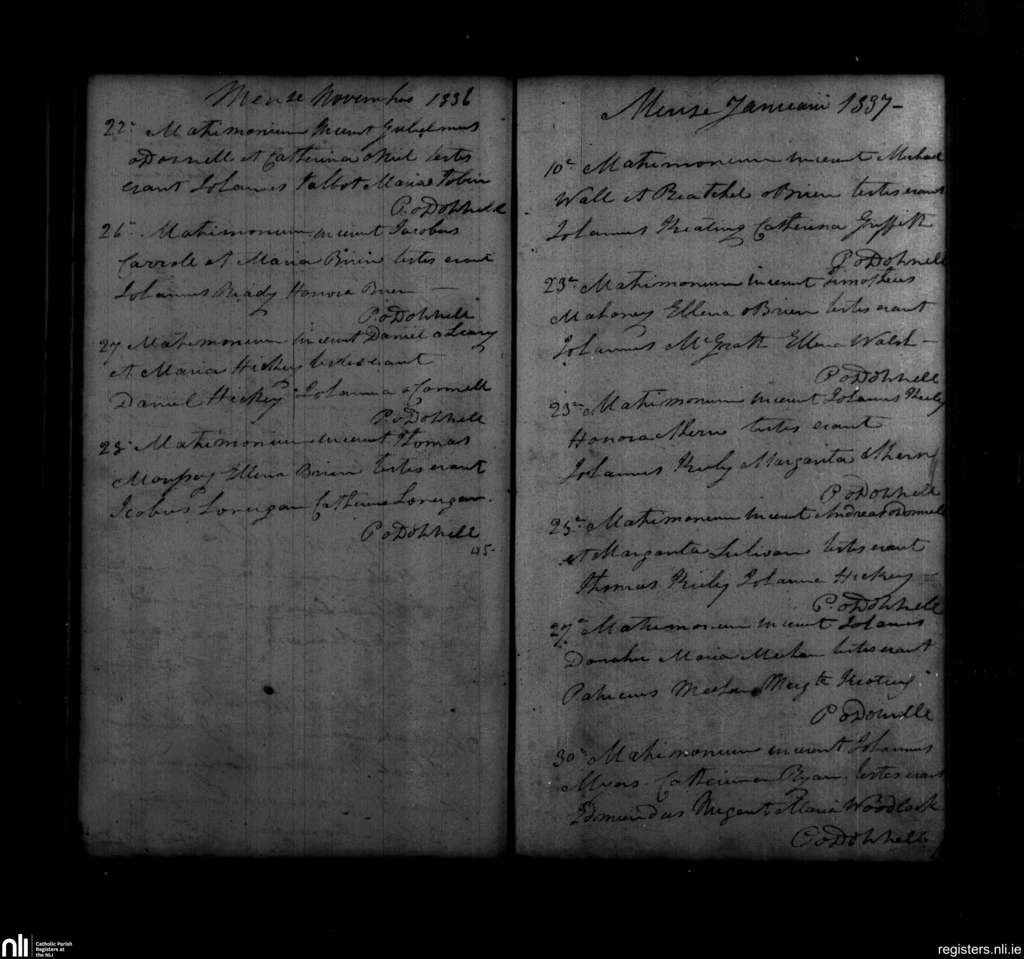 Mense Novembris 1836
22a Matrimonium inierunt Gulielmus
oDonnell et Catherina oNiel testes
erant Johannes Talbot Maria Tobin
P. oDonnell
26a Matrimonium inierunt Jacobus
Carroll et Maria Brien testes erant
Johannes Brady Honora Brien
P. oDonnell
27 Matrimonium inierunt Daniel oLeary
et Maria Hickey testes erant
Daniel Hickey Johanna oConnell
P. oDonnell
28a Matrimonium inierunt Thomas
Ellena Brien testes erant
Jcobus Lonergan Catherina Lonergan.
P. oDonnell
45.
Mense Januarii 1837-
10a Matrimonium inierunt Michael
Wall et Reatchel oBrien testes erant
Johannes Keating Catherina Griffith
P. oDonnell
23a Matrimonium inierunt Timotheus
Mahoney Ellena oBrien testes erant
Johannes McGrath Ellena Walsh -
P. oDonnell
23a Matrimonium inierunt Johannes Kiely
Honora Ahern testes erant
Johannes Kiely Margarita Ahern
P. oDonnell
25a Matrimonium inierunt Andreas oDonnell
et Margarita Sulivan testes erant
Thomas Kiely Johanna Hickey
P. oDonnell
27a Matrimonium inierunt Johannes
Donahu Maria Meehan testes erant
Patricius Meehan Margt Keating
P. oDonnell
30a Matrimonium inierunt Johannes
Myars Catherina Ryan testes erant
Edmundus Nugent Maria Woodlock
P. oDonnell
nli
Catholic Parish
Registers at
the NLI
registers.nli.ie